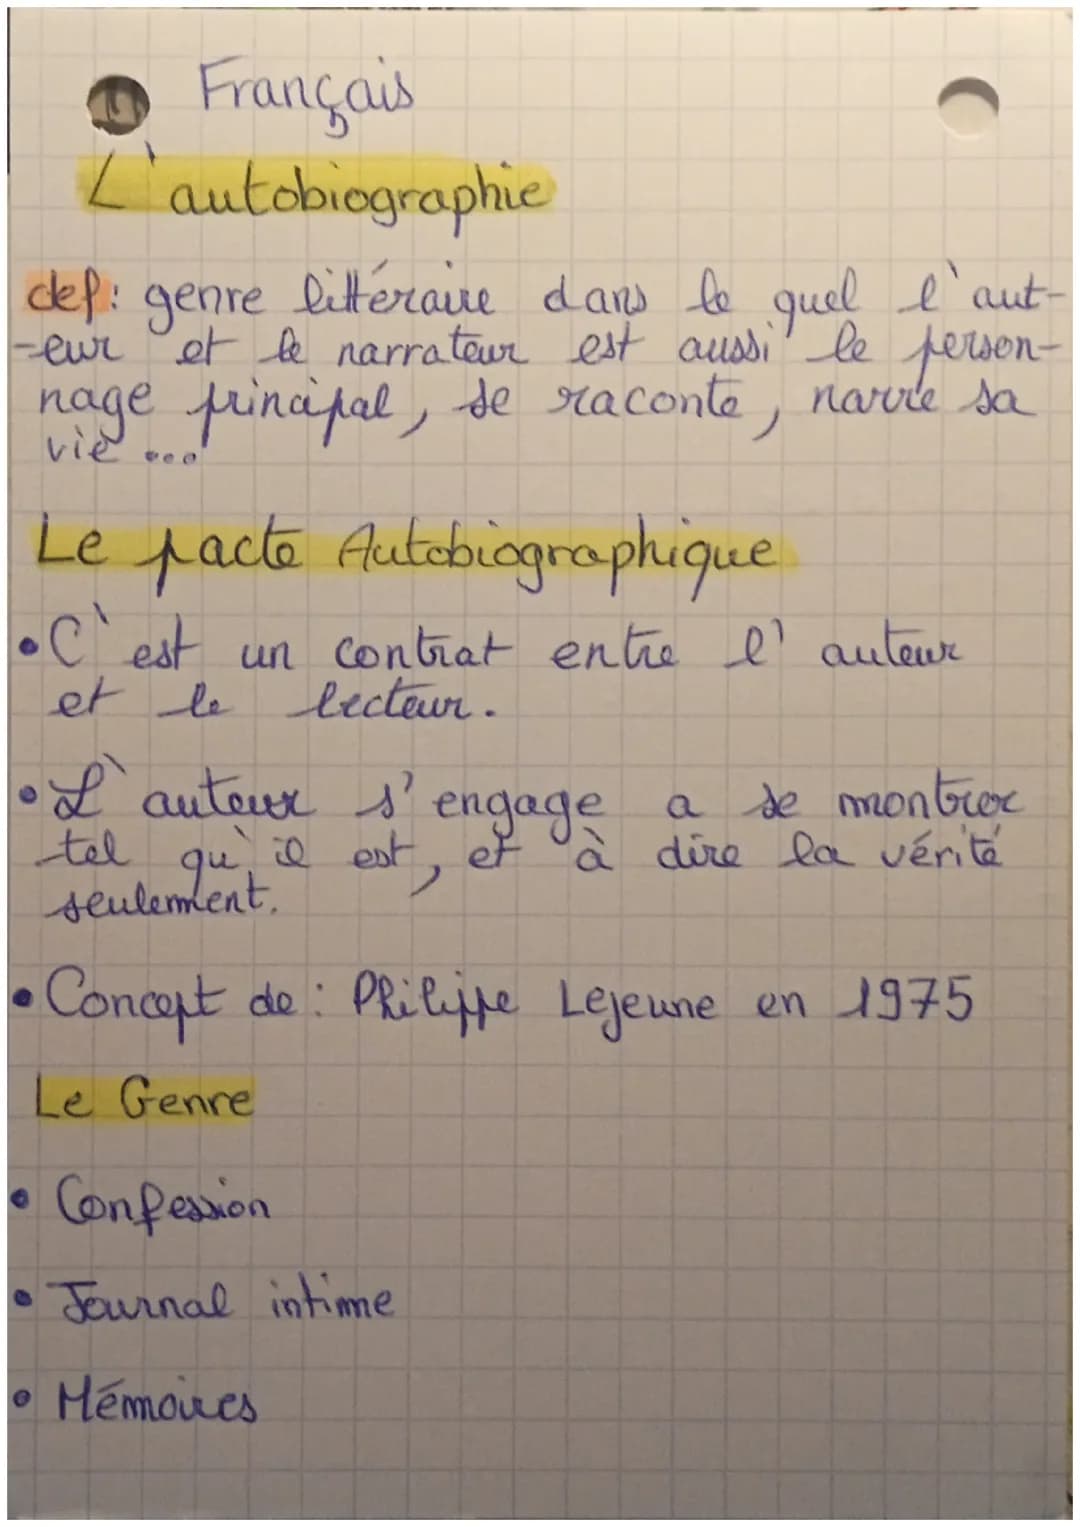 Français
L'autobiographie
def: genre littéraire dans le quel l'aut-
-eur et le narrateur est aussi le person-
nage principal, se raconte, narre sa
vie ...
Le pacte Autobiographique
• C'est un contrat entre l'auteur
et le lecteur.
• L'auteur s'engage a se montrer
tel qu'il est, et à dire la vérité
seulement.
• Concept de : Philippe Lejeune en 1975
Le Genre
• Confession
• Journal intime
• Mémoires